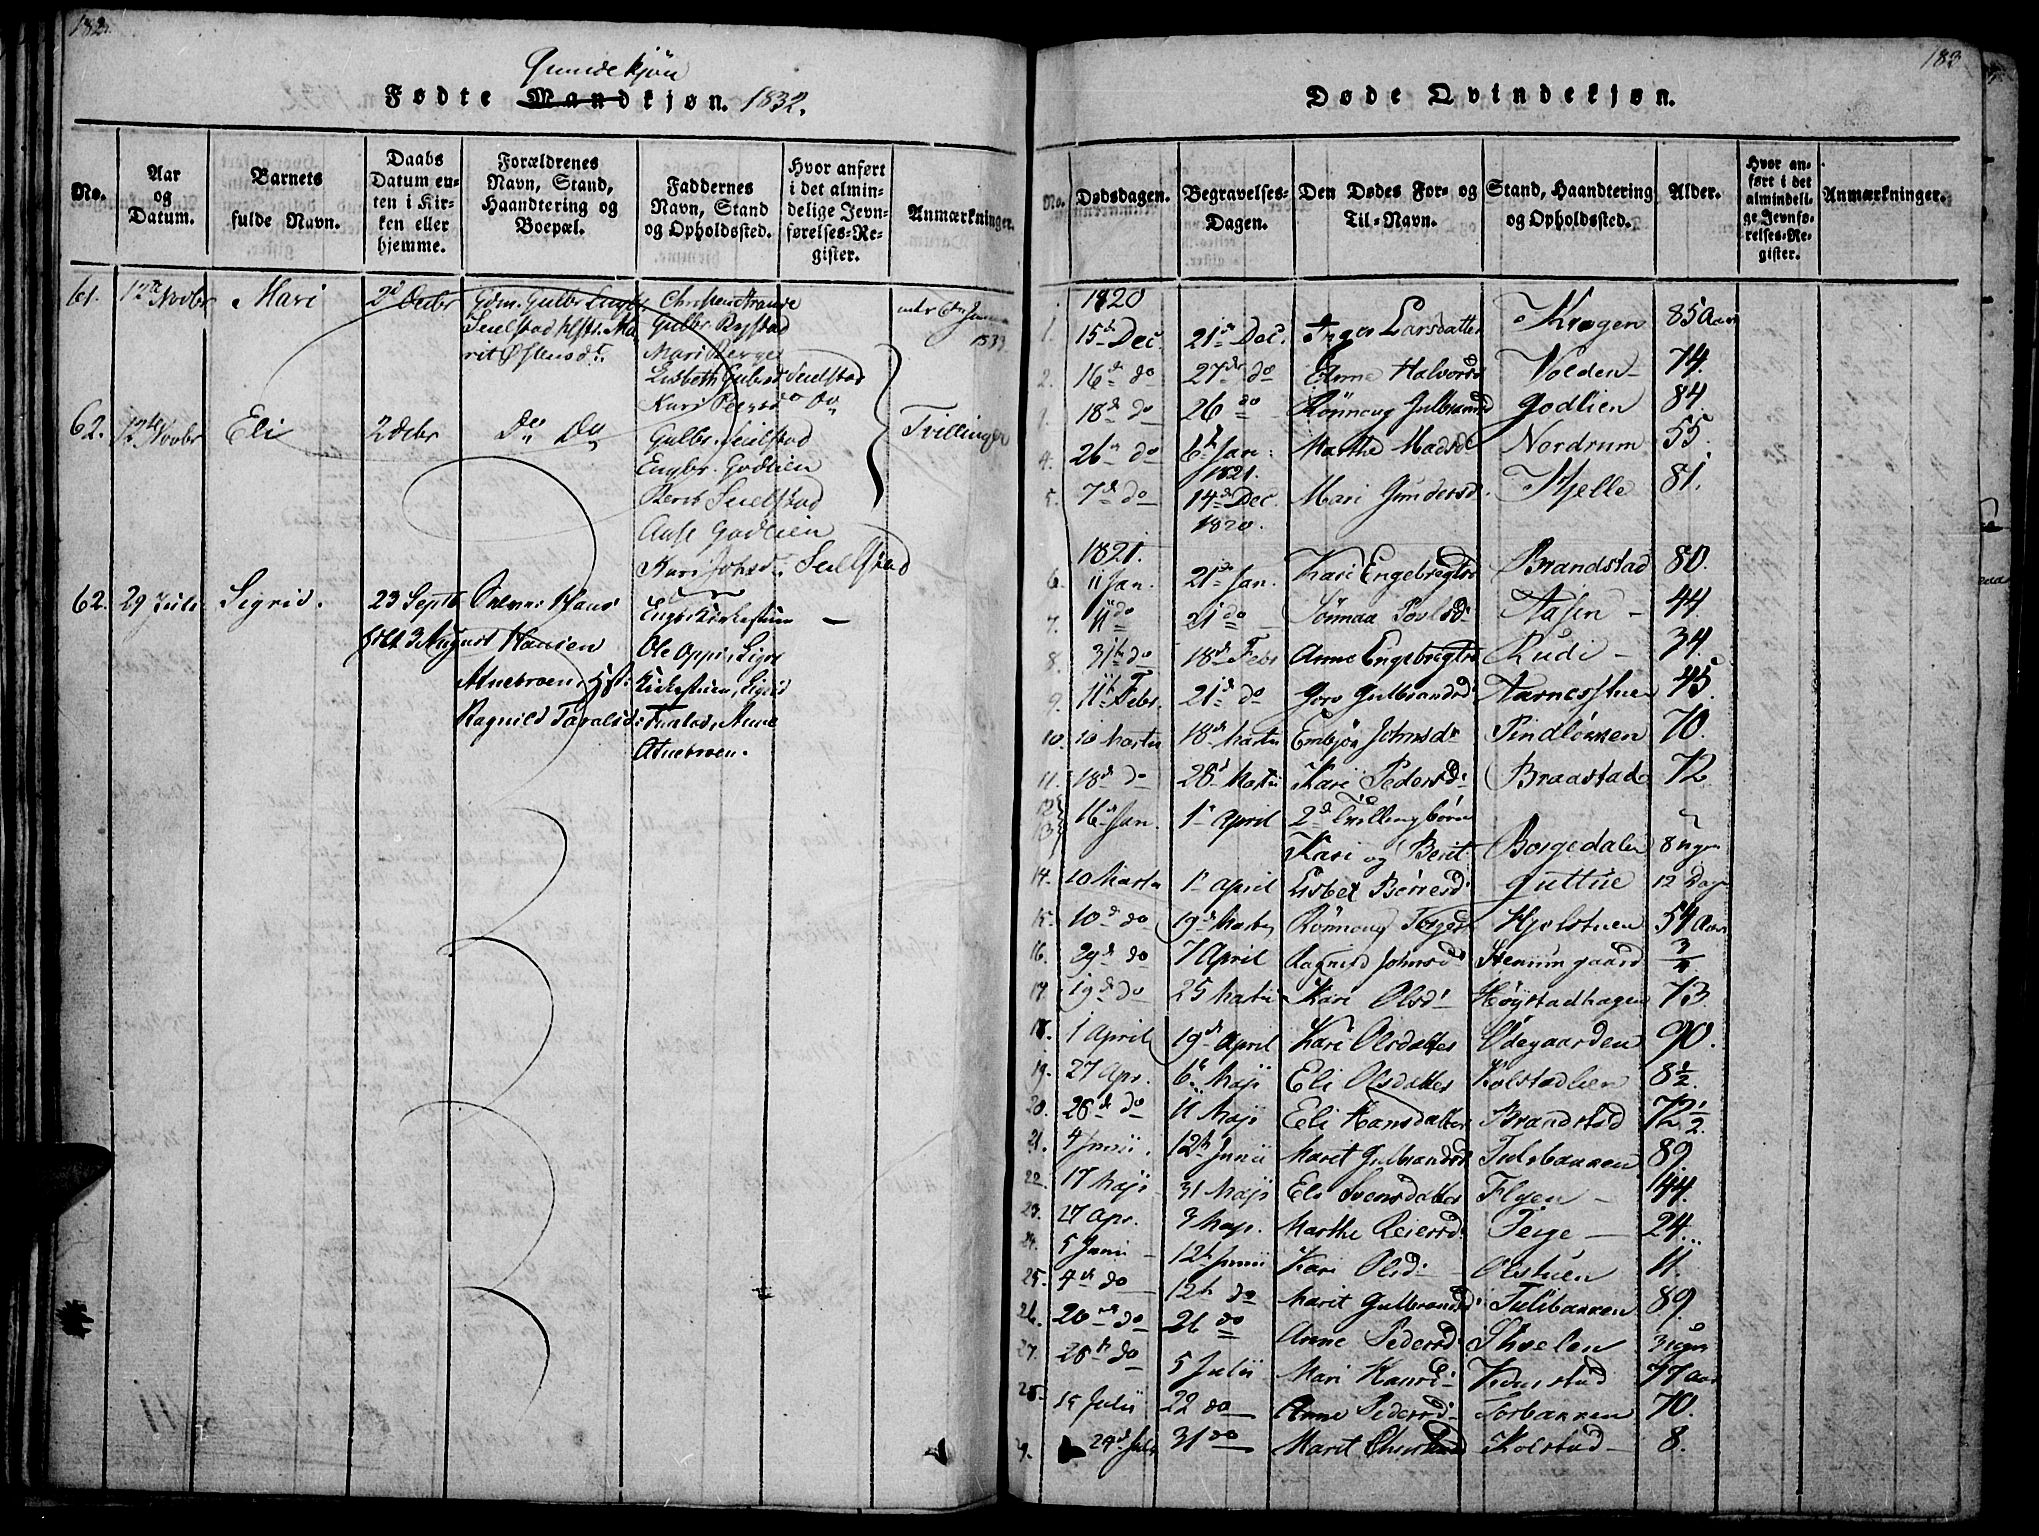 182.
Qvindekjön
Fødte Mandkjøn. 1832.
No.
Aar og Datum.
Barnets fulde Navn.
Daabs Datum enten i Kirken eller hjemme.
Forældrenes Navn, Stand, Haandtering og Boepæl.
Faddernes Navn, Stand og Opholdssted.
Hvor anført i det almindelige Jevnførelses-Register.
Anmærkninger.
61. 12te Novbr Mari 2d Decbr Gdm. Gulbr Engbr Christen Strande
Seielstad Hstr. Ma Gulbr. Rystad
rit Østensdr. Mari Berge
Lisbeth Gulbrsd Seielstad
Kari Pedersd Do
62. 12te Novbr Eli 2 Decbr Do Do Gulbr. Seielstad Tvillinger
Engbr. Godlien
Berit Seielstad
Anse Godlien
Kari Johsd. Seielstad
62. 29 Juli Sigrid. 23 Septb Hans Engbr Kirkestuen
3 August Hansen Ole Oppi, Sigri
Atnebroen, Kirkestuen, Sigrid
Ragnild Anne
Atnebroen.
183
Døde Qvindekjøn.
No.
Dødsdagen.
Begravelses-Dagen.
Den Dødes For- og Til-Navn.
Stand, Haandtering og Opholdssted.
Alder.
Hvor anført i det almindelige Jevnførelses-Register.
Anmærkninger.
1820
1. 15de Dec. 21de Dec. Inger Larsdatter Kragen 85 Aar
2. 16de do 27de do Anne Halvorsd Volden 74.
18de do 26 do Rönnoug Gulbrandsd Godlien 84
4. 26 do 6te Jan: Marthe Madsd Nordrum 55.
1821.
5. 7de do 14de Dec Mari Gundersd. Kjelle 81.
1820.
1821.
6. 11 Jan. 21de Jan. Kari Engebregtsd Brandstad 80.
7. 11 do 21 do Povlsd Aasen 44.
8. 31te do 18de Febr Anne Engebregtsd Rudi 34
9. 11te Febr. 21de do Goro Gulbrandsd Aarnesstuen 45.
10. 10 Martii 18de Martii Embjör Johnsdr 70.
11. 18de do 28de Martii Kari Pedersd: Braastad 72
12 13 16de Jan. 1te April 2de Tvillingbörn
Kari og Berit Borgedalen 8 uger
14. 10 Martii 1te April Lisbet 12 Dage
15. 10de do 19de Martii Rönnoug Torgersd Hjelstuen 54 Aar
16. 29de do 7 April Ragnild Johnsd 3/4
17. 19de do 25 Martii Kari Olsd: Höystadhagen 73
18. 1 April 19de April Kari Olsdatter Ödegaarden 90.
19. 27 Apr. 6te Maji Eli Olsdatter Kolstadlien 8½
20. 28de do 11 Maji Eli Hansdatter Brandstad 72½
21. 4 Junii. 12te Junii Marit Gulbrandsd Tulibakken 89
22. 17 Maji 31 Maji Eli Svensdatter Flyen 44.
23. 27 Apr. 3 Maji. Marthe Reiersd: 24
24. 5 Junii 12te Junii Kari Olsd: Olstuen 11.
25. 4de do 12te do Marit Gulbrandsd Tulibakken 89.
26. 20de do 26 do Anne Pedersd: 3 uger
27. 28de do 5 Julii Mari Hansd: 77 Aar
28. 15 Julii 22 do Anne Pedersd: 70.
9. 29de Juli 31 do Marit Kolstad 8.